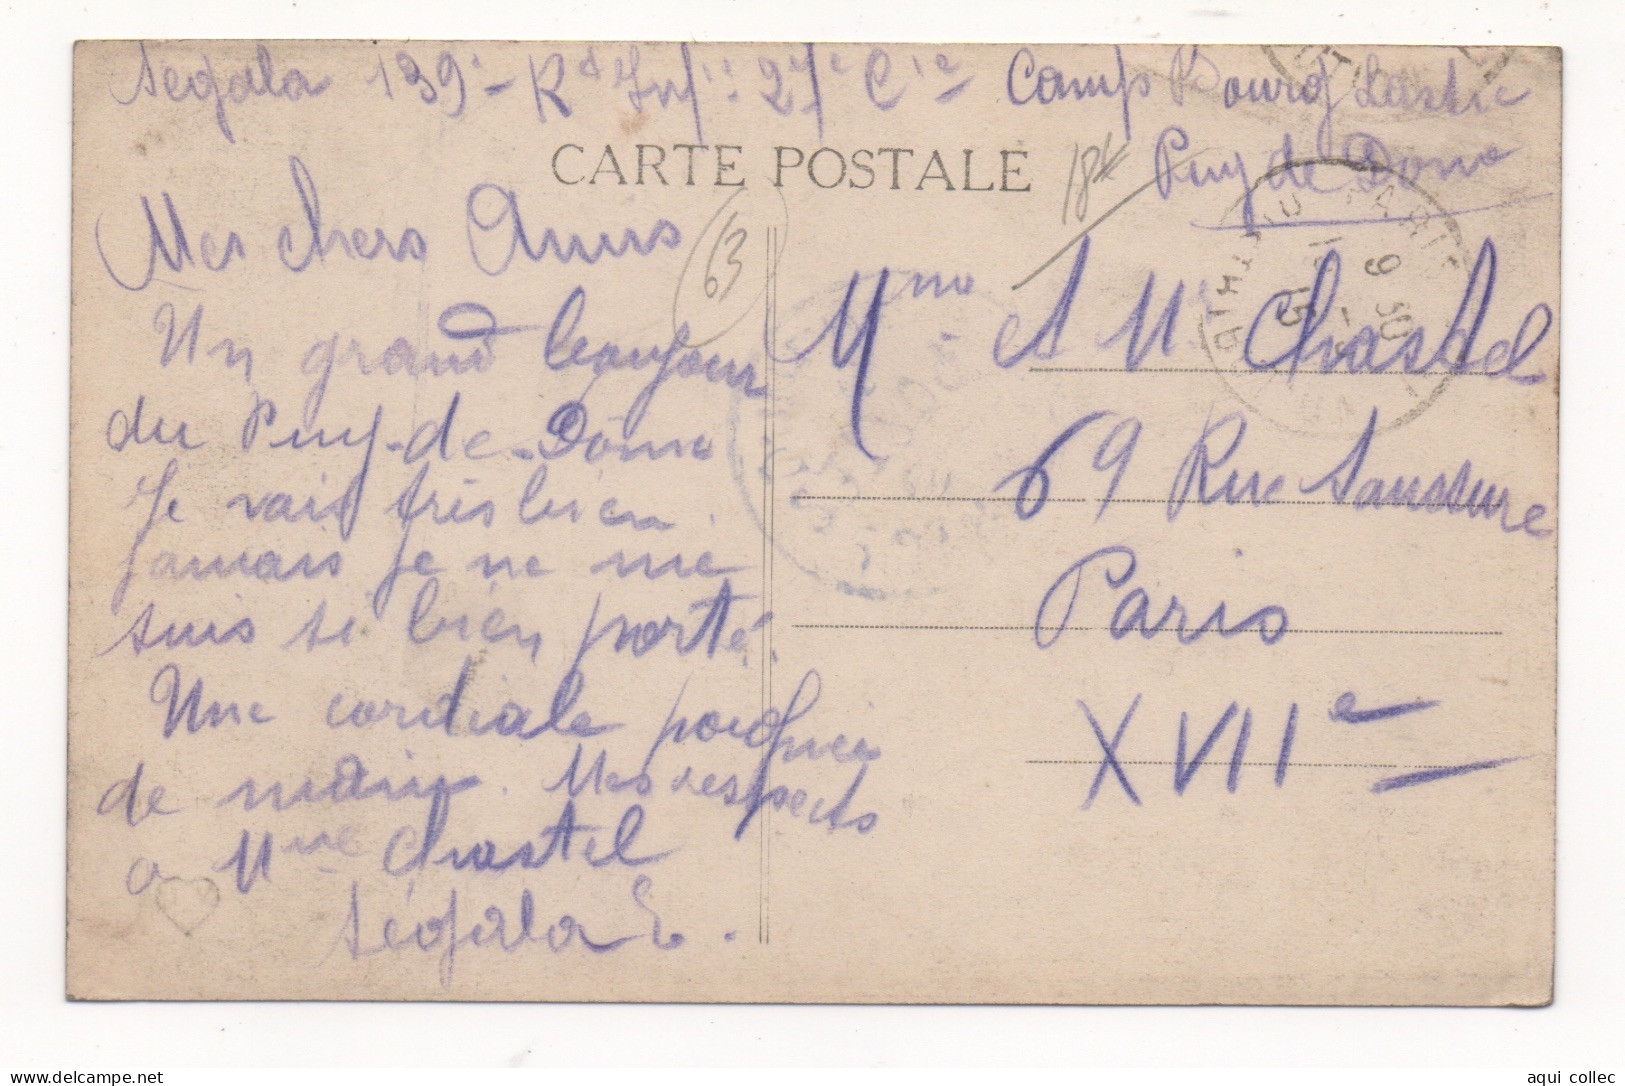 Segala 139e Rd Infie 27e Cie Camp Bourg Lastic
Puy de Dome
CARTE POSTALE
18k
63
Mes chers Amis
Un grand bonjour
du Puy-de-Dôme
Je vais très bien.
Jamais je ne me
suis si bien porté.
Une cordiale poignée
de main. Mes respects
a Mme Chastel
Ségala E.
Mme et Mr Chastel
69 Rue Saussure
Paris
XVIIe
PARIS
9 30
aqui collec